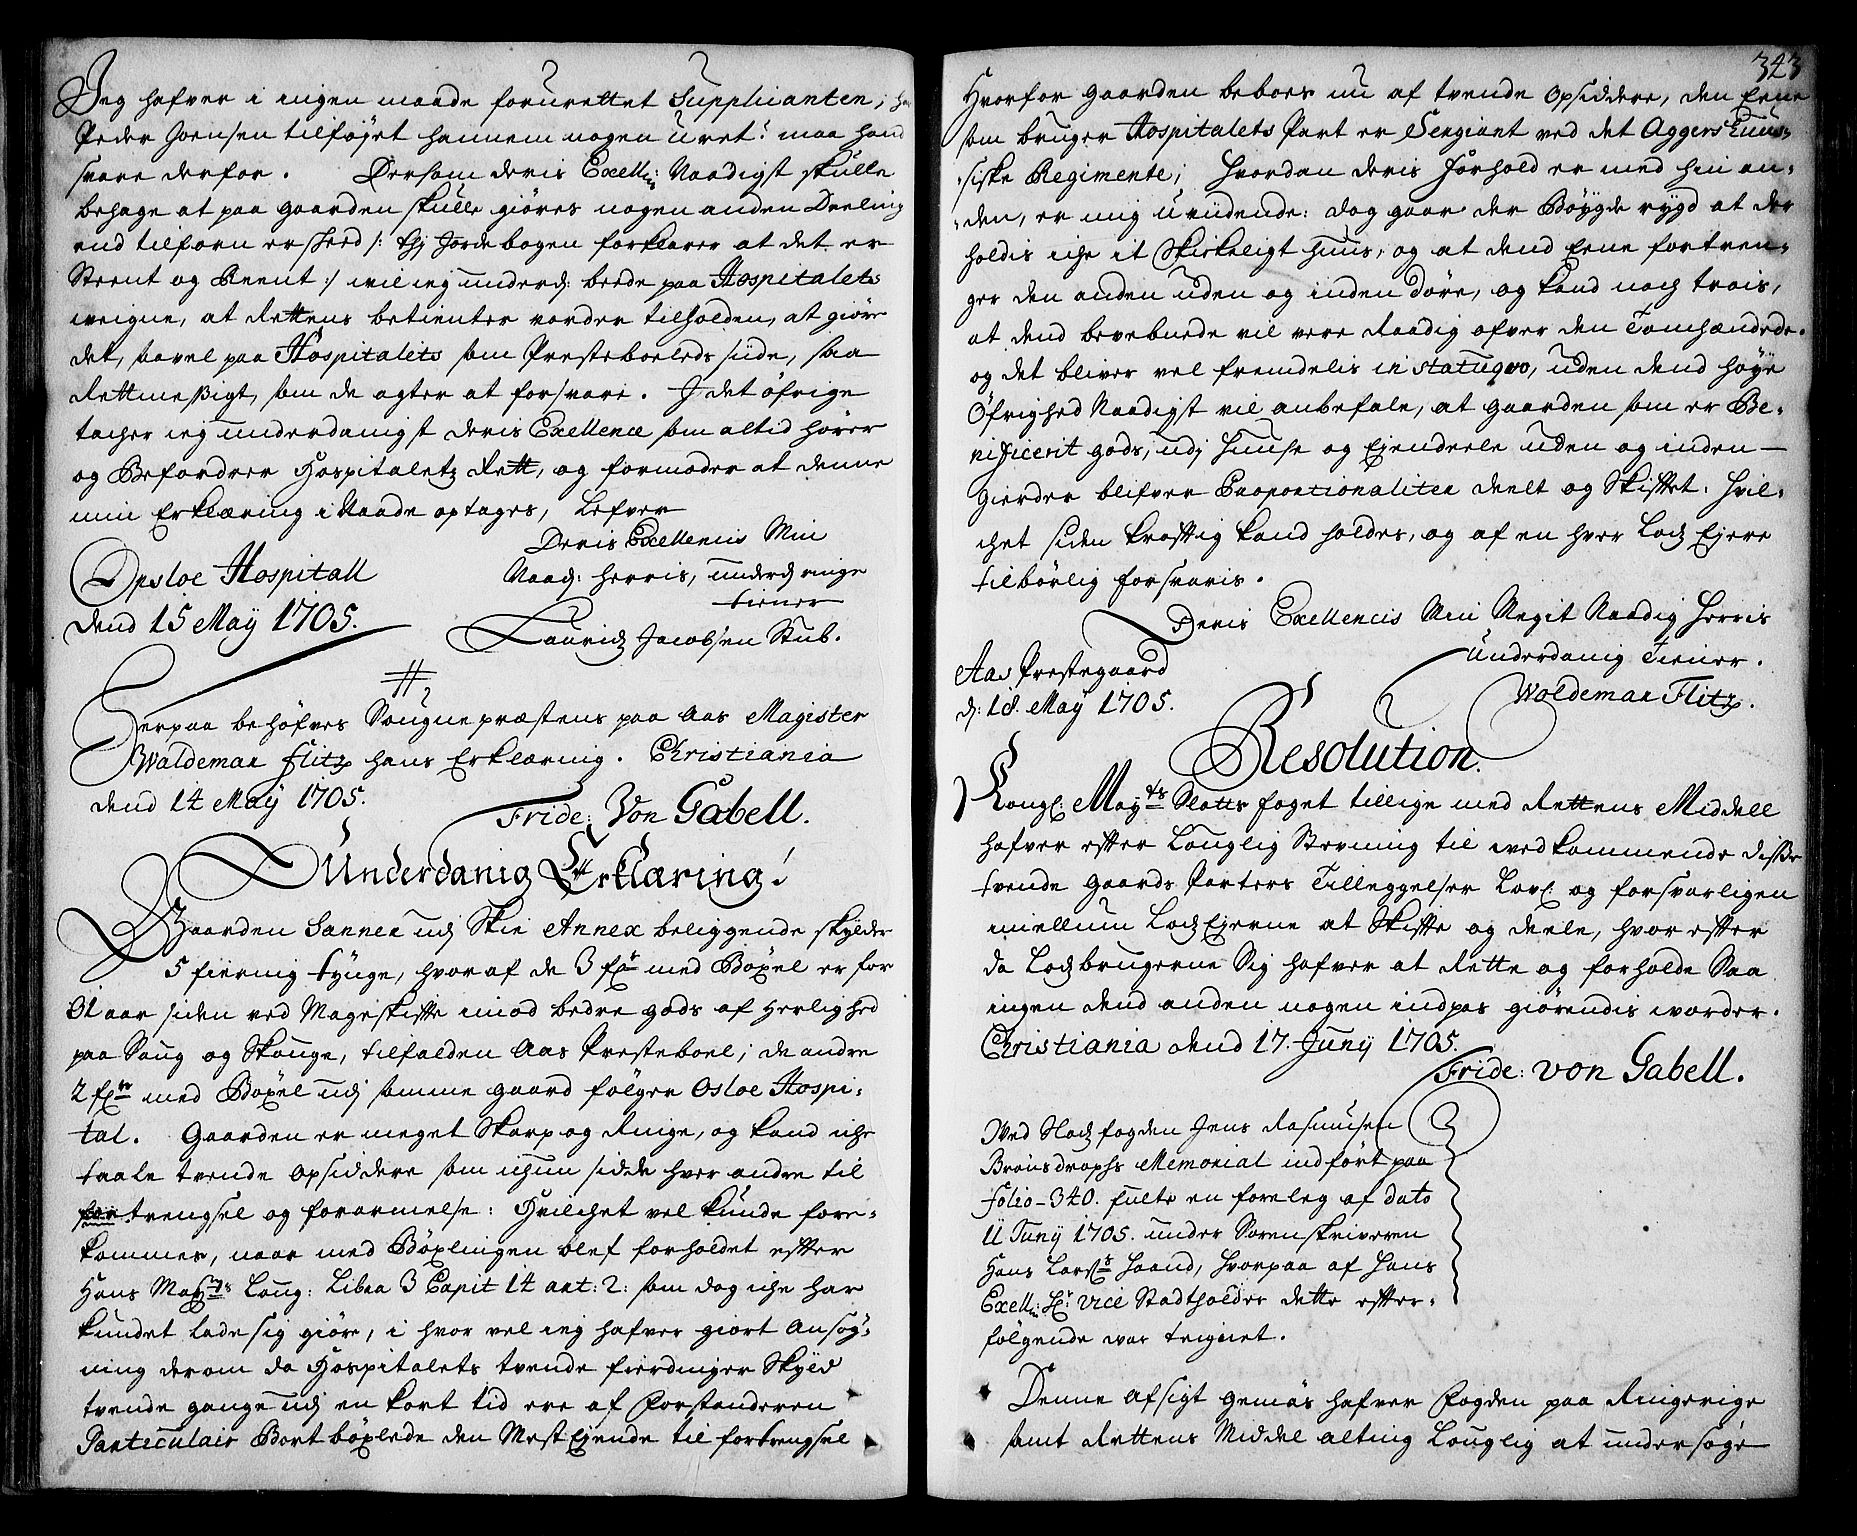 Jeg hafver i ingen maade forurettet Supplicanten, har
Peder Joensen tilföÿet hannem nogen uret! maa hand
svare derfor. Dersom deris Excell: Naadigst skulle
behage at paa gaarden skulle giöres nogen anden Deeling
end tilforn er skeed /: thj Jordebogen forklarer at det er
Strent og Reent :/ wil ieg underd: bede paa Hospitalets
weigne, at Rettens betienter vorder tilholden, at giöre
det, saavel paa Hospitalets som Presteboelets siide, saa
Rettmeßigt, som de agter at forsvare. J det öfrige
tacher ieg underdanigst deris Exellence som altid hörer
og Befordrer Hospitaletz Rett, og formoder at denne
min Erklæring i Naade optages, Lefver
Deris Exellencis Min
Naad: Herris, underd ringe
tiener
Opsloe Hospitall
dend 15 Maÿ 1705.
Lauridz Jacobsen Stub.
Herpaa behöfves Sougnepræstens paa Aas Magister
Waldemar Flitz hans Erklæring. Christiania
dend 14 Maÿ 1705.
Fride: Von Gabell.
Underdanig Erklæring!
Gaarden Sanner udj Skie Annex beliggende skylder
5 fierning tÿnge, hvoraf de 3 f: med Böxel er for
31 aar siden ved Mageskifte imod bedre gods af herlighed
paa Saug og Skouge, tilfalden Aas Presteboel; de andre
2 f: med Böxel udj samme gaard fölger Osloe Hospi-
tal. Gaarden er meget Skarp og Ringe, og kand iche
taale tvende opsiddere som ichun sidde hver andre til
fortrengsel og forarmelse: Hvilchet vel kunde fore-
kommes, naar med Böxlingen blef forholdet efter
Hans Mayts Loug: Libra 3 Capit 14 art: 2: som dog iche har
kundet lade sig giöre, i hvor vel ieg hafver giort Ansög-
ning derom da Hospitalets tvende fierdinger Skÿld
tvende gange udj en kort tid ere af Forstanderen
Particulair Bortböxlede den Mest Ejende til fortrengsel
323
Hvorfor gaarden beboes nu af tvende opsiddere, den Eene
som bruger Hospitalets Part er Sergiant ved det Aggershuus-
siske Regimente; hvordan deris forhold er med hin an-
den, er mig uviidende: dog gaar der Böÿgde rÿgd at der
holdis iche it Skickeligt huus, og at dend Eene fortren-
ger den anden uden og inden döre, og kand nock trois,
at dend bevebnede vil vere Raadig ofver den Tomhændede.
og det bliver vel fremdelis in statuqvo, uden dend höÿe
Öfrighed Naadigst vil anbefale, at gaarden som er Be-
nificerit gods, udj huuse og Ejendeele uden og inden
gierder blifver Proportionaliter deelt og Skiftet. hvil-
chet siden kraftig kand holdes, og af en hver Lodz Ejere
tilbörlig forsvaris.
Deris Exellencis Min Megit Naadig Herris
Underdanig Tiener.
Aas Prestegaard
d: 18. Maÿ 1705.
Woldemar Flitz.
Resolution.
Kongl: Mayts Slotts foget tillige med Rettens Middell
hafver efter Louglig Stevning til wedkommende disse
tvende gaards Parters Tilleggelser Lovl: og forsvarligen
mellum Lodz Ejerne at Skifte og deele, hvor efter
da Lodzbrugerne Sig hafver at Rette og forholde Saa
ingen dend anden nogen indpas giörendis worder.
Christiania dend 17. Junÿ 1705.
Fride: von Gabell.
Wed Slodzfogden Jens Rasmusen
Brönsdrophs Memorial indfört paa
folio-340. fulte en foreleg af dato
11 Junÿ 1705. under Sorenskriveren
Hans Larss: haand, hvorpaa af Hans
Excell: Hr: Vice Stadtholder dette efter-
fölgende war teignet.
Denne Afsigt gemäs hafver Fogden paa Ringerige
samt Rettens Middel alting Louglig at undersöge